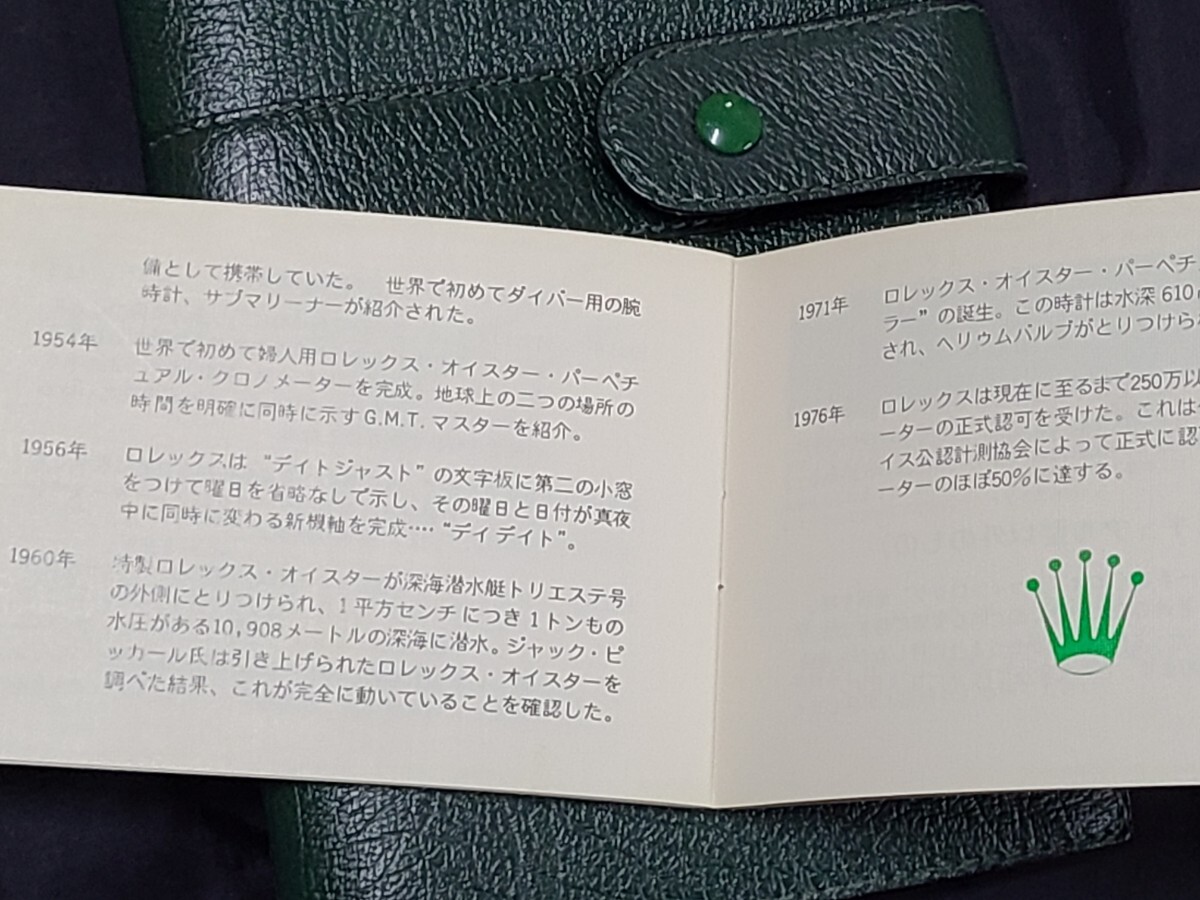 備として携帯していた。 世界で初めてダイバー用の腕
時計、サブマリーナーが紹介された。
1954年 世界で初めて婦人用ロレックス・オイスター・パーペチ
ュアル・クロノメーターを完成。地球上の二つの場所の
時間を明確に同時に示すG.M.T.マスターを紹介。
1956年 ロレックスは “デイトジャスト” の文字板に第二の小窓
をつけて曜日を省略なしで示し、その曜日と日付が真夜
中に同時に変わる新機軸を完成‥‥“デイデイト”。
1960年 特製ロレックス・オイスターが深海潜水艇トリエステ号
の外側にとりつけられ、1平方センチにつき1トンもの
水圧がある10,908メートルの深海に潜水。ジャック・ピ
ッカール氏は引き上げられたロレックス・オイスターを
調べた結果、これが完全に動いていることを確認した。
1971年 ロレックス・オイスター・パーペチ
ラー” の誕生。この時計は水深610
され、ヘリウムバルブがとりつけら
1976年 ロレックスは現在に至るまで250万以
ーターの正式認可を受けた。これは
イス公認計測協会によって正式に認
ーターのほぼ50%に達する。